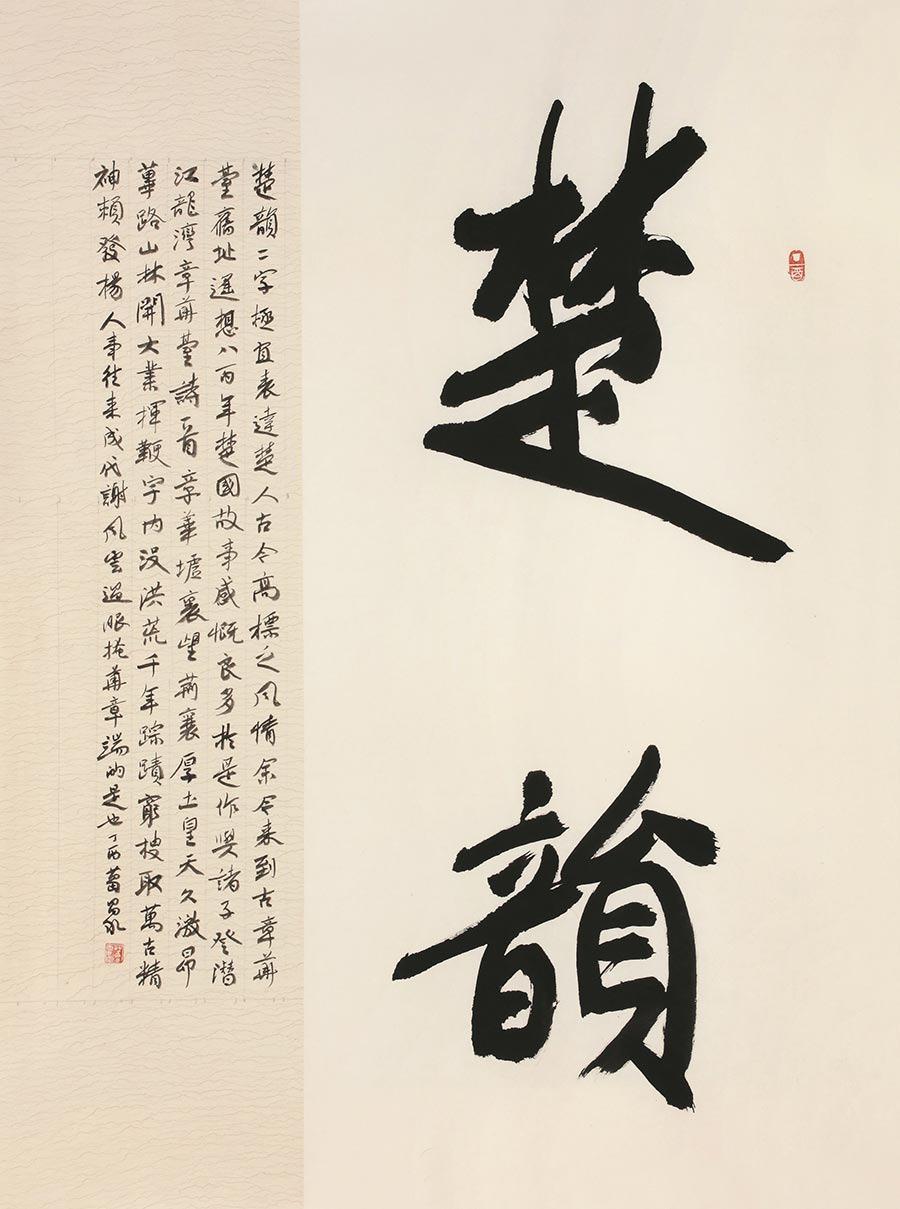 楚韻
楚韻二字極宜表達楚人古今高標之風情余今來到古章華
臺舊址遥想八百年楚國故事感慨良多於是作與諸子登潛
江龍灣章華臺詩一首章華墟裏望荊襄厚土皇天久激昂
蓽路山林開大業揮鞭宇内没洪荒千年踪蹟窮搜取萬古精
神賴發揚人事往來成代謝風雲過眼掩華章端的是也丁酉